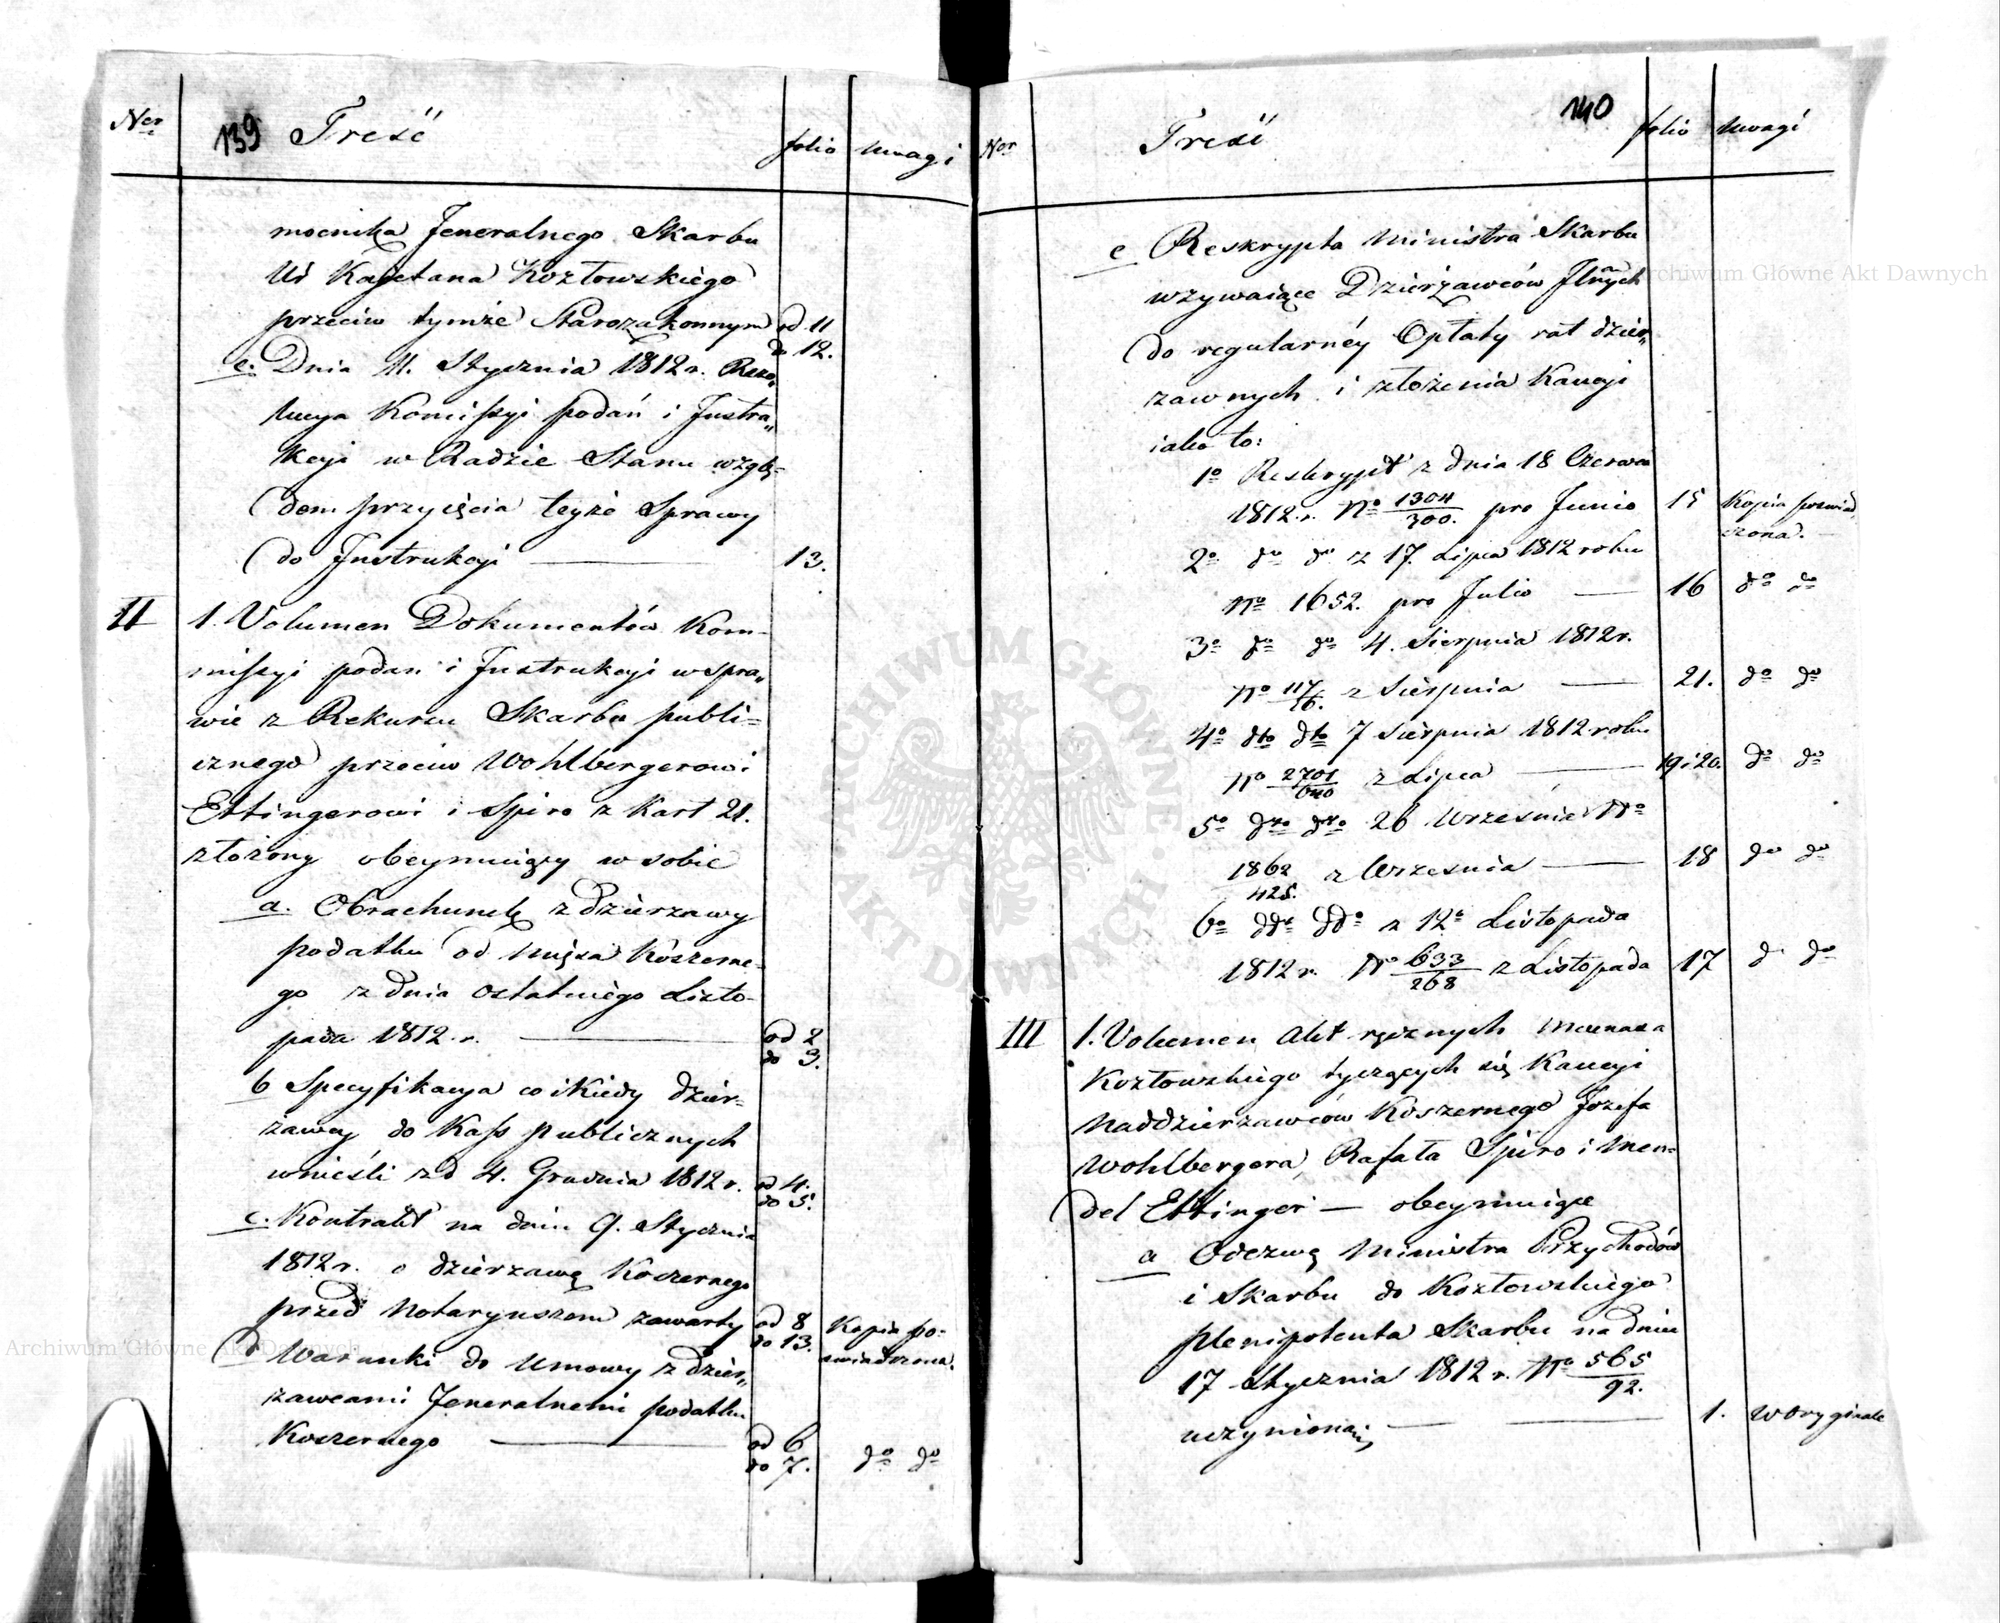 Ner 139 Treść folio uwagi
mocnika Jeneralnego Skarbu
Ur Kajetana Kozłowskiego
przeciw tymże Starozakonnym od 11
do 12.
e. Dnia 11. Stycznia 1812 r. Rezo„
lucya Komissyi podań i Instru„
kcyi w Radzie Stanu wzglę=
dem przyięcia teyże Sprawy
do Instrukcyi — 13.
II 1. Volumen Dokumentów Kom-
missyi podań i Instrukcyi w spra„
wie z Rekursu Skarbu publi=
cznego przeciw Wohlbergerowi
Ettingerowi i Spiro z Kart 21.
złożony obeymuiący w sobie
a. Obrachunek z Dzierzawy
podatku od mięsa Koszerne-
go z dnia ostatniego Listo-
pada 1812 r. — od 2
do 3.
b Specyfikacya co i Kiedy dzier=
zawcy do Kass publicznych
wnieśli z d 4. Grudnia 1812 r. od 4.
do 5.
c. Kontrakt na dniu 9. Stycznia
1812 r. o dzierzawę Koszernego
przed Notaryuszem zawarty od 8
do 13. Kopia po-
swiadczona.
d Warunki do Umowy z dzier„
zawcami Jeneralnemi podatku
Koszernego — od 6
do 7. do do
Ner Treść 140 folio uwagi
e Reskrypta Ministra Skarbu
wzywaiące Dzierżawców Jlnych
do regularnéy Opłaty rat dzier„
zawnych i złożenia Kaucyi
iako to:
1o Reskrypt z dnia 18 Czerwca
1812. r. No 1304/300. pro Junio 15 Kopia poswiad
czona.
2o do do z 17. Lipca 1812 roku
No 1652. pro Julio — 16 do do
3o do do 4. Sierpnia 1812 r.
No 117/56. z Sierpnia — 21. do do
4o dto dto 7 Sierpnia 1812 roku
No 2701/640 z Lipca — 19 i 20. do do
5o dto dto 26 Września No
1862/425. z Września — 18 do do
6o ddo ddo z 12o Listopada
1812 r. No 633/268 z Listopada 17 do do
III 1. Volumen Akt ręcznych Mecenasa
Kozłowskiego tyczących się Kaucyi
Naddzierzawców Koszernego Jozefa
Wohlbergera, Rafała Spiro i Men=
del Ettinger — obeymuiące
a Odezwę Ministra Przychodów
i Skarbu do Kozłowskiego
plenipotenta Skarbu na dniu
17 Stycznia 1812 r. No 565/92.
uczynioną — 1. w Oryginale
Archiwum Główne Akt Dawnych
Archiwum Główne Akt Dawnych
ARCHIWUM GŁÓWNE AKT DAWNYCH